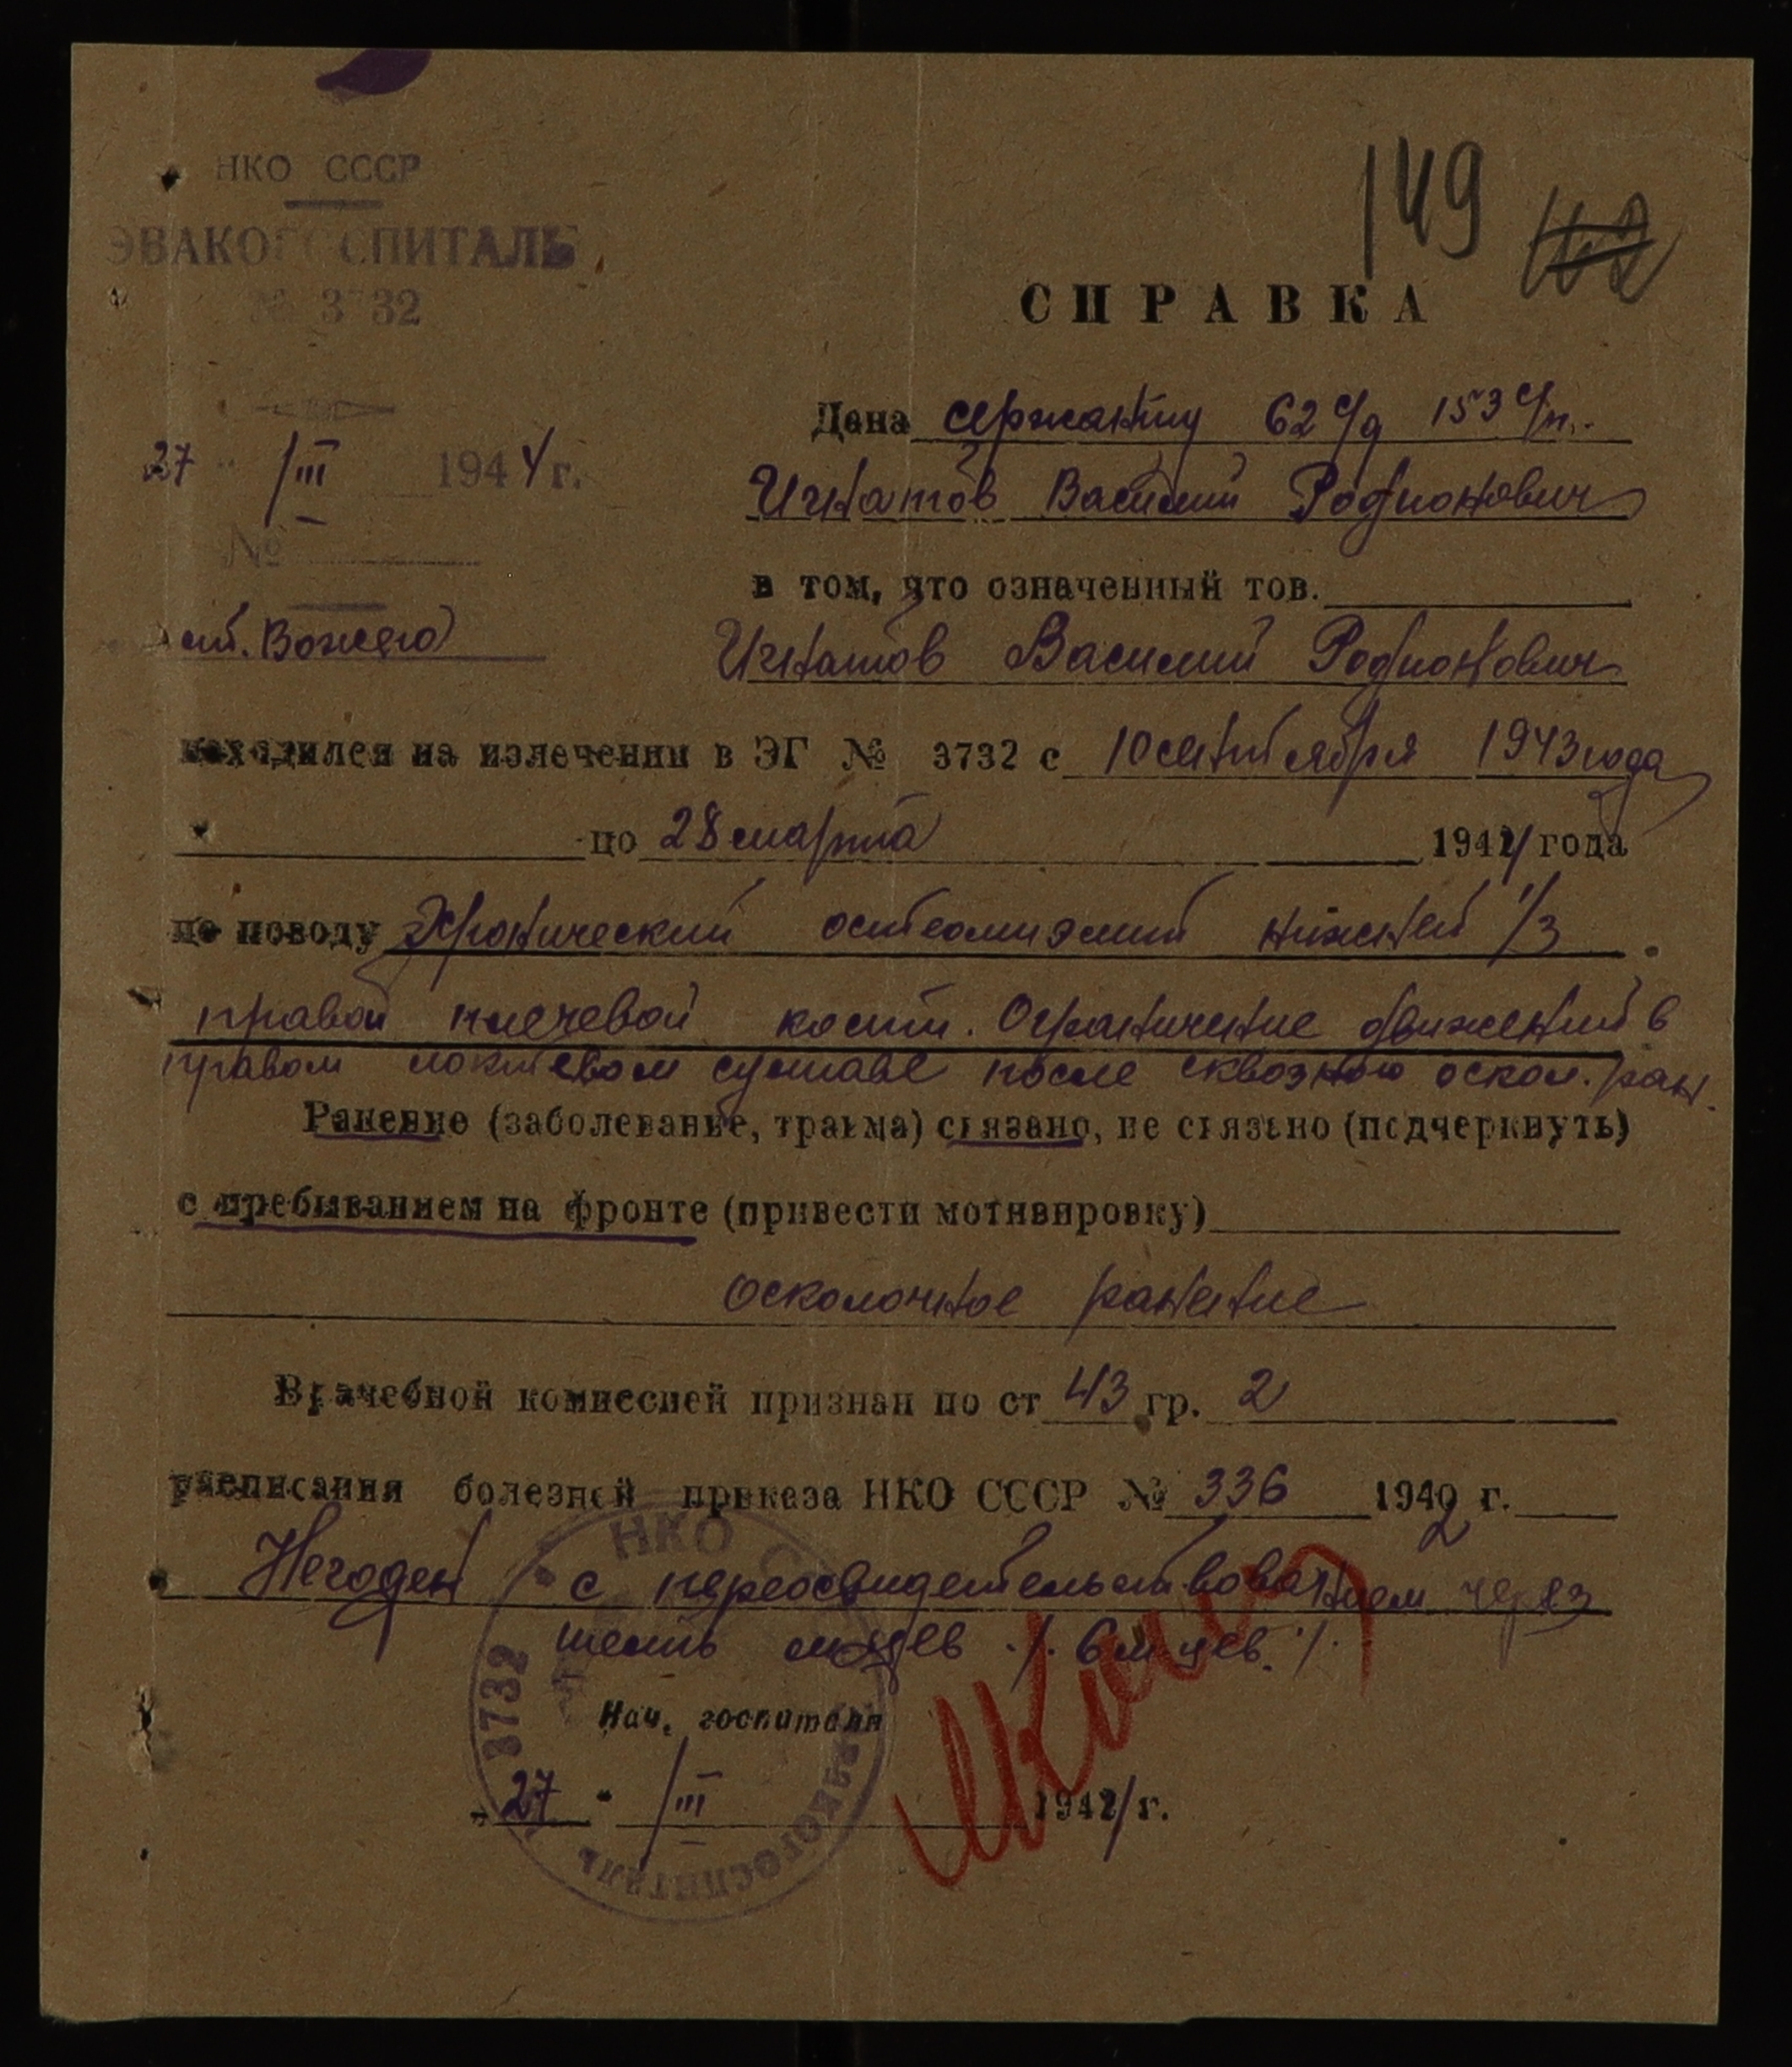 149
НКО СССР
ЭВАКОГОСПИТАЛЬ
№ 3732
СПРАВКА
Дана сержанту 62 с/д 153 с/п.
27 " /III 1944 г.
Игнатов Василий Родионович
№
в том, что означенный тов.
ст. Вожега
Игнатов Василий Родионович
находился на излечении в ЭГ № 3732 с 10 сентября 1943 года
по 28 марта 1944 года
по поводу Хронический остеомиэлит нижней 1/3
правой плечевой кости. Ограничение движений в
правом локтевом суставе после сквозного оскол. ран.
Ранение (заболевание, травма) связано, не связано (подчеркнуть)
с пребыванием на фронте (привести мотивировку)
осколочное ранение
Врачебной комиссией признан по ст 43 гр. 2
расписания болезней приказа НКО СССР № 336 1942 г.
Негоден с переосвидетельствованием через
шесть м-цев ./. 6 м-цев. ./.
НКО
3732
ЭВАКОГОСПИТАЛЬ
Нач. госпиталя
„ 27 " /III 1944 г.